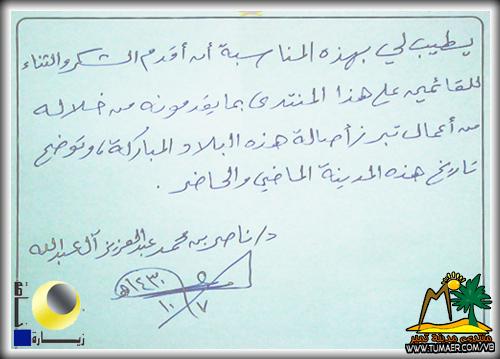 يطيب لي بهذه المناسبة أن أقدم الشكر والثناء
للقائمين على هذا المنتدى بما يقدمونه من خلاله
من أعمال تبرز أصالة هذه البلاد المباركة، وتوضح
تاريخ هذه المدينة الماضي والحاضر.
د/ ناصر بن محمد عبدالعزيز آل عبدالله
١٤٣٠هـ
١٠/٧
زيارة
منتدى مدينة تمير
WWW.TUMAER.COM/VB